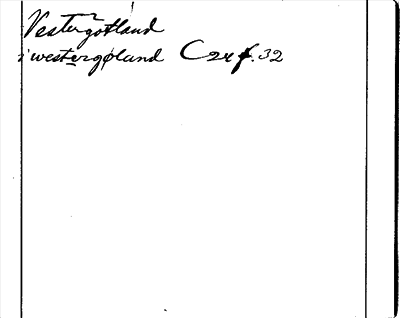 Vestergotland
i westergøland C 24 f. 32